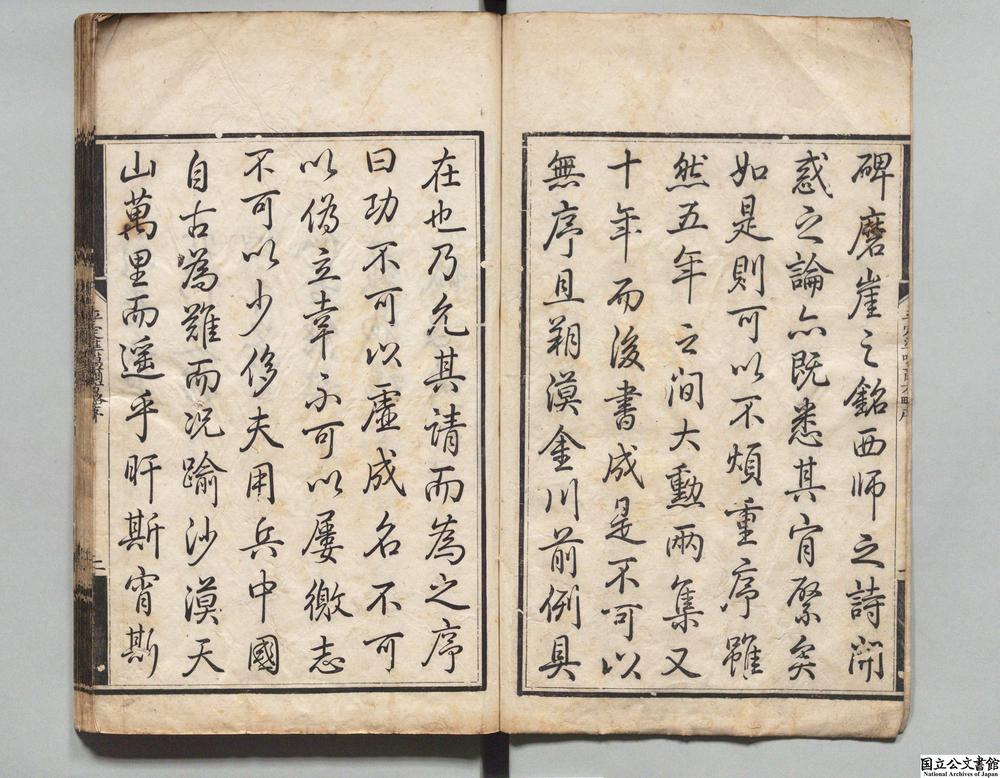 碑磨崖之銘西師之詩開
惑之論亦既悉其肯綮矣
如是則可以不煩重序雖
然五年之間大勳兩集又
十年而後書成是不可以
無序且朔漠金川前例具
在也乃允其請而為之序
曰功不可以虛成名不可
以偽立幸不可以屢徼志
不可以少侈夫用兵中國
自古為難而況踰沙漠天
山萬里而遥乎旰斯宵斯
国立公文書館
National Archives of Japan